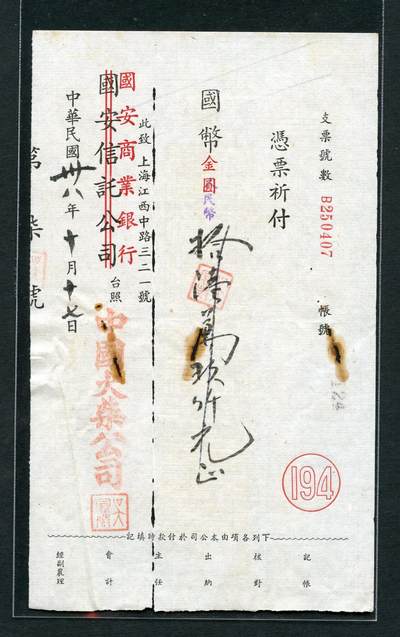 支票號數 B250407 帳號
124
憑票祈付
國幣金圓民幣拾陸萬玖仟元正
194
此致 上海江西中路三二一號
國安商業銀行
國安信託公司 台照
中華民國卅八年十月十七日
第柒號
中國火柴公司
下列各項由本公司於付款時填記
記帳
核對
出納
主任
會計
經副襄理